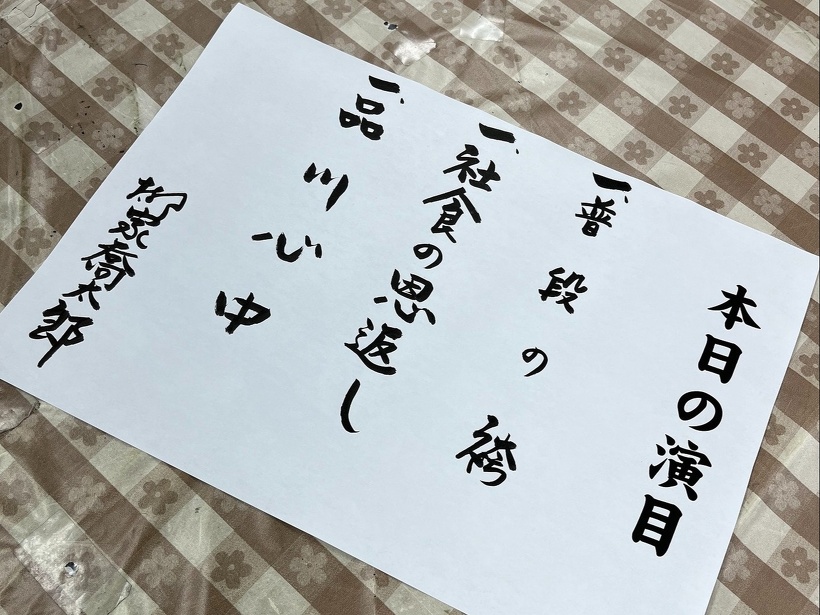 本日の演目
一、普段の袴
一、社食の恩返し
一、品川心中
柳家喬太郎